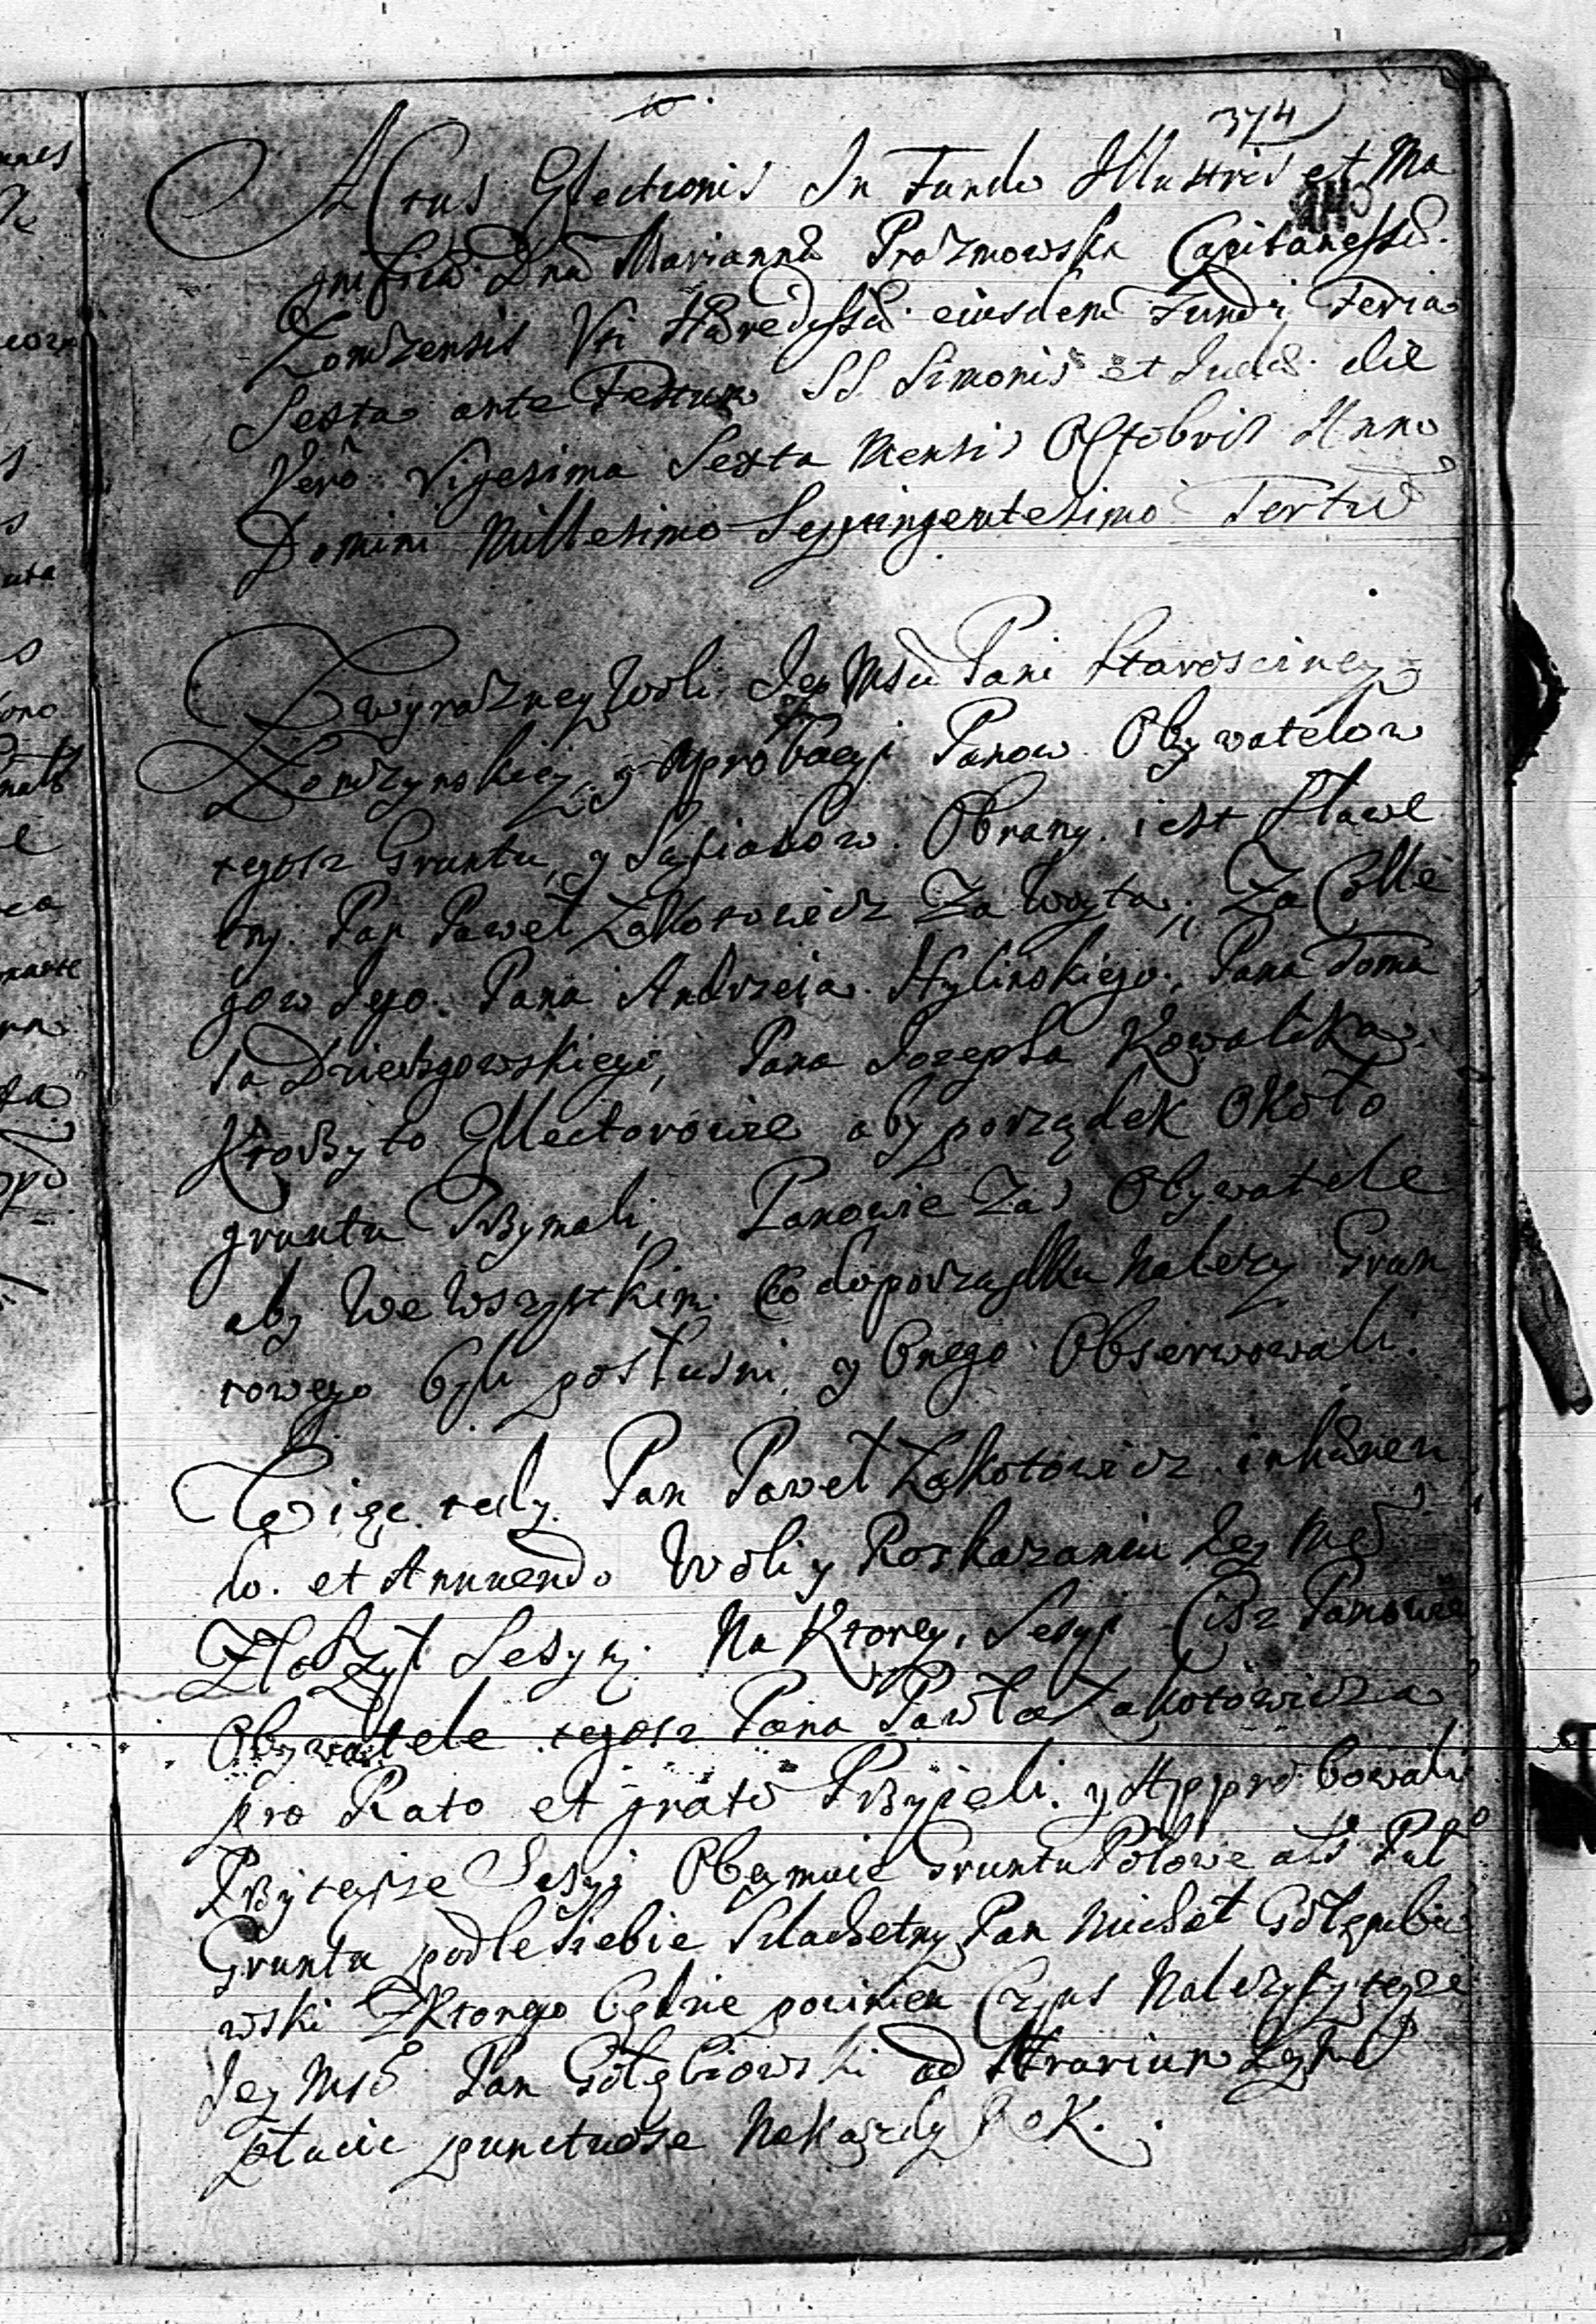 374
Actus Electionis In Fundo Illustris et Ma
gnificae Dnae Mariannae Prazmowska Capitanessae
Łomzensis Uti Haeredissae eiusdem Fundi Feria
Sexta ante Festum SS Simonis et Judae die
Vero Vigesima Sexta Mensis Octobris Anno
Domini Millesimo Septuingentesimo Tertio
Z wyrazney Woli Jey Msci Pani Starosciney
Łomzynskiey, y Approbacyi Panow Obywatelow
tegosz Gruntu, y Sąsiadow Obrany iest Sławe
tny Pan Paweł Zakotowicz Za Woyta; Za Colle
gow Jego Pana Andrzeia Hylinskiego, Pana Toma
sa Dzierzgowskiego, Pana Jozepha Kowalika
Ktorzy to Ellectorowie aby porządek Około
gruntu Trzymali, Panowie Zas Obywatele
aby We Wszystkim Co do porządku Nalezy Grun
towego byli posłuszni, y Onego Obserwowali.
Więc tedy Pan Paweł Zakotowicz inhaeren
do et Annuendo Woli y Roskazaniu Jey Mci
Złozył Sesyą Na Ktorey Sesyi Cisz Panowie
Obywatele tegosz Pana Pawła Zakotowicza
pro Rato et grato Przyięli y Approbowali
Przy teysze Sesyi Obeymuie Gruntu Połowe als Puł
Gruntu podle Siebie Szlachetny Pan Michał Gołębio
wski Z Ktorego będzie powinien Czynsz Nalezyty teysze
Jey Msci Pan Gołębiowski ad Aerarium Jey Mci
płacic punctuose Na Kazdy Rok.